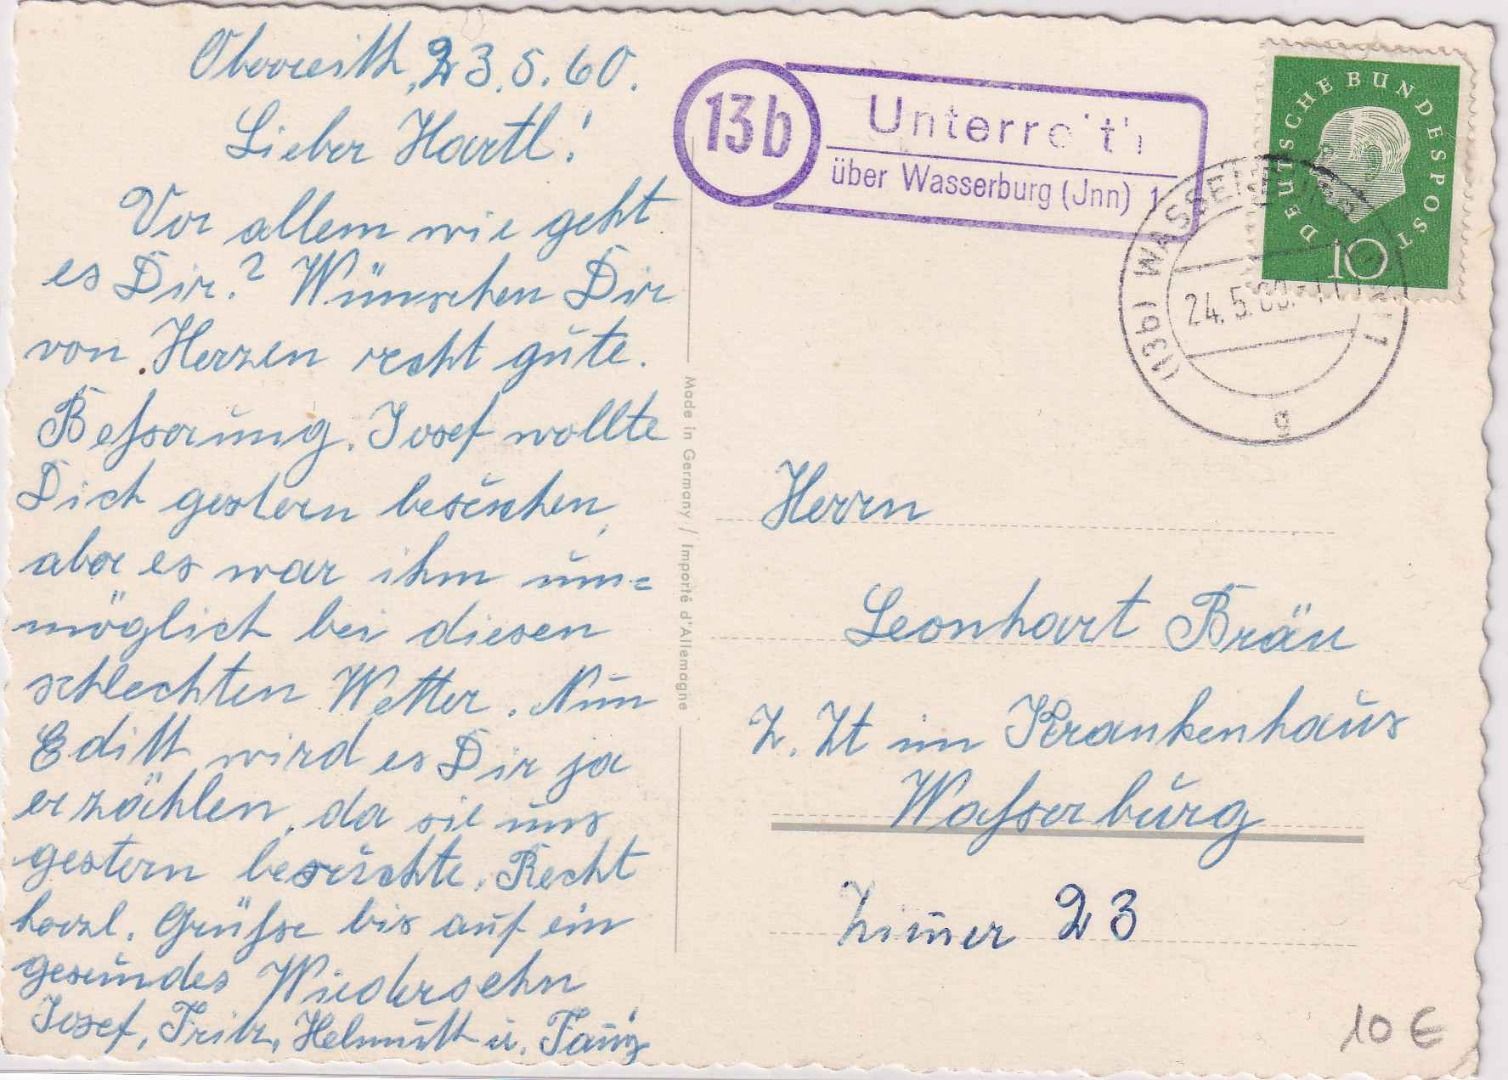 Oberreith, 23.5.60.
Lieber Hartl!
Vor allem wie geht
es Dir? Wünschen Dir
von Herzen recht gute.
Beſserung. Josef wollte
Dich gestern besuchen,
aber es war ihm un=
möglich bei diesen
schlechten Wetter. Nun
Edith wird es Dir ja
erzählen, da sie uns
gestern besuchte. Recht
herzl. Grüſse bis auf ein
gesundes Wiedersehn
Josef, Fritz, Helmuth u.
Made in Germany / Importé d'Allemagne
13b
Unterre't'
über Wasserburg (Jnn) 1
DEUTSCHE BUNDESPOST
10
(13b) WASSERBURG
24.5.60
g
Herrn
Leonhart Bräu
z. Zt im Krankenhaus
Waſserburg
Zim̄er 23
10 €